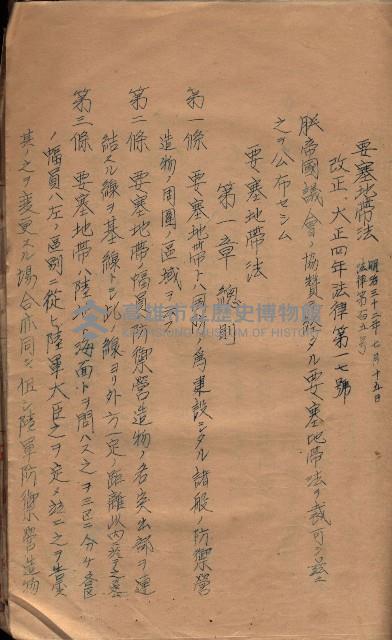 要塞地帯法 明治三十二年七月十五日
法律第百五号
改正、大正四年法律第一七號
朕帝國議會ノ協賛ヲ経タル要塞地帯法ヲ裁可シ茲ニ
之ヲ公布セシム
要塞地帯法
第一章 總則
第一條 要塞地帯トハ國防ノ為建設シタル諸般ノ防禦營
造物ノ周圍ノ區域
第二條 要塞地帯幅員防禦營造物ノ各突出部ヲ連
結スル線ヲ基線トシ線ヨリ外方一定ノ距離以内
第三條 要塞地帯ハ陸 海面トヲ問ハス之ヲ三区ニ分ケ各區
ノ幅員ハ左ノ區別ニ従ヒ陸軍大臣之ヲ定メ 之ヲ告
其ノ之ヲ変更スル場合亦同シ但シ陸軍防禦營造物
高雄市立歷史博物館